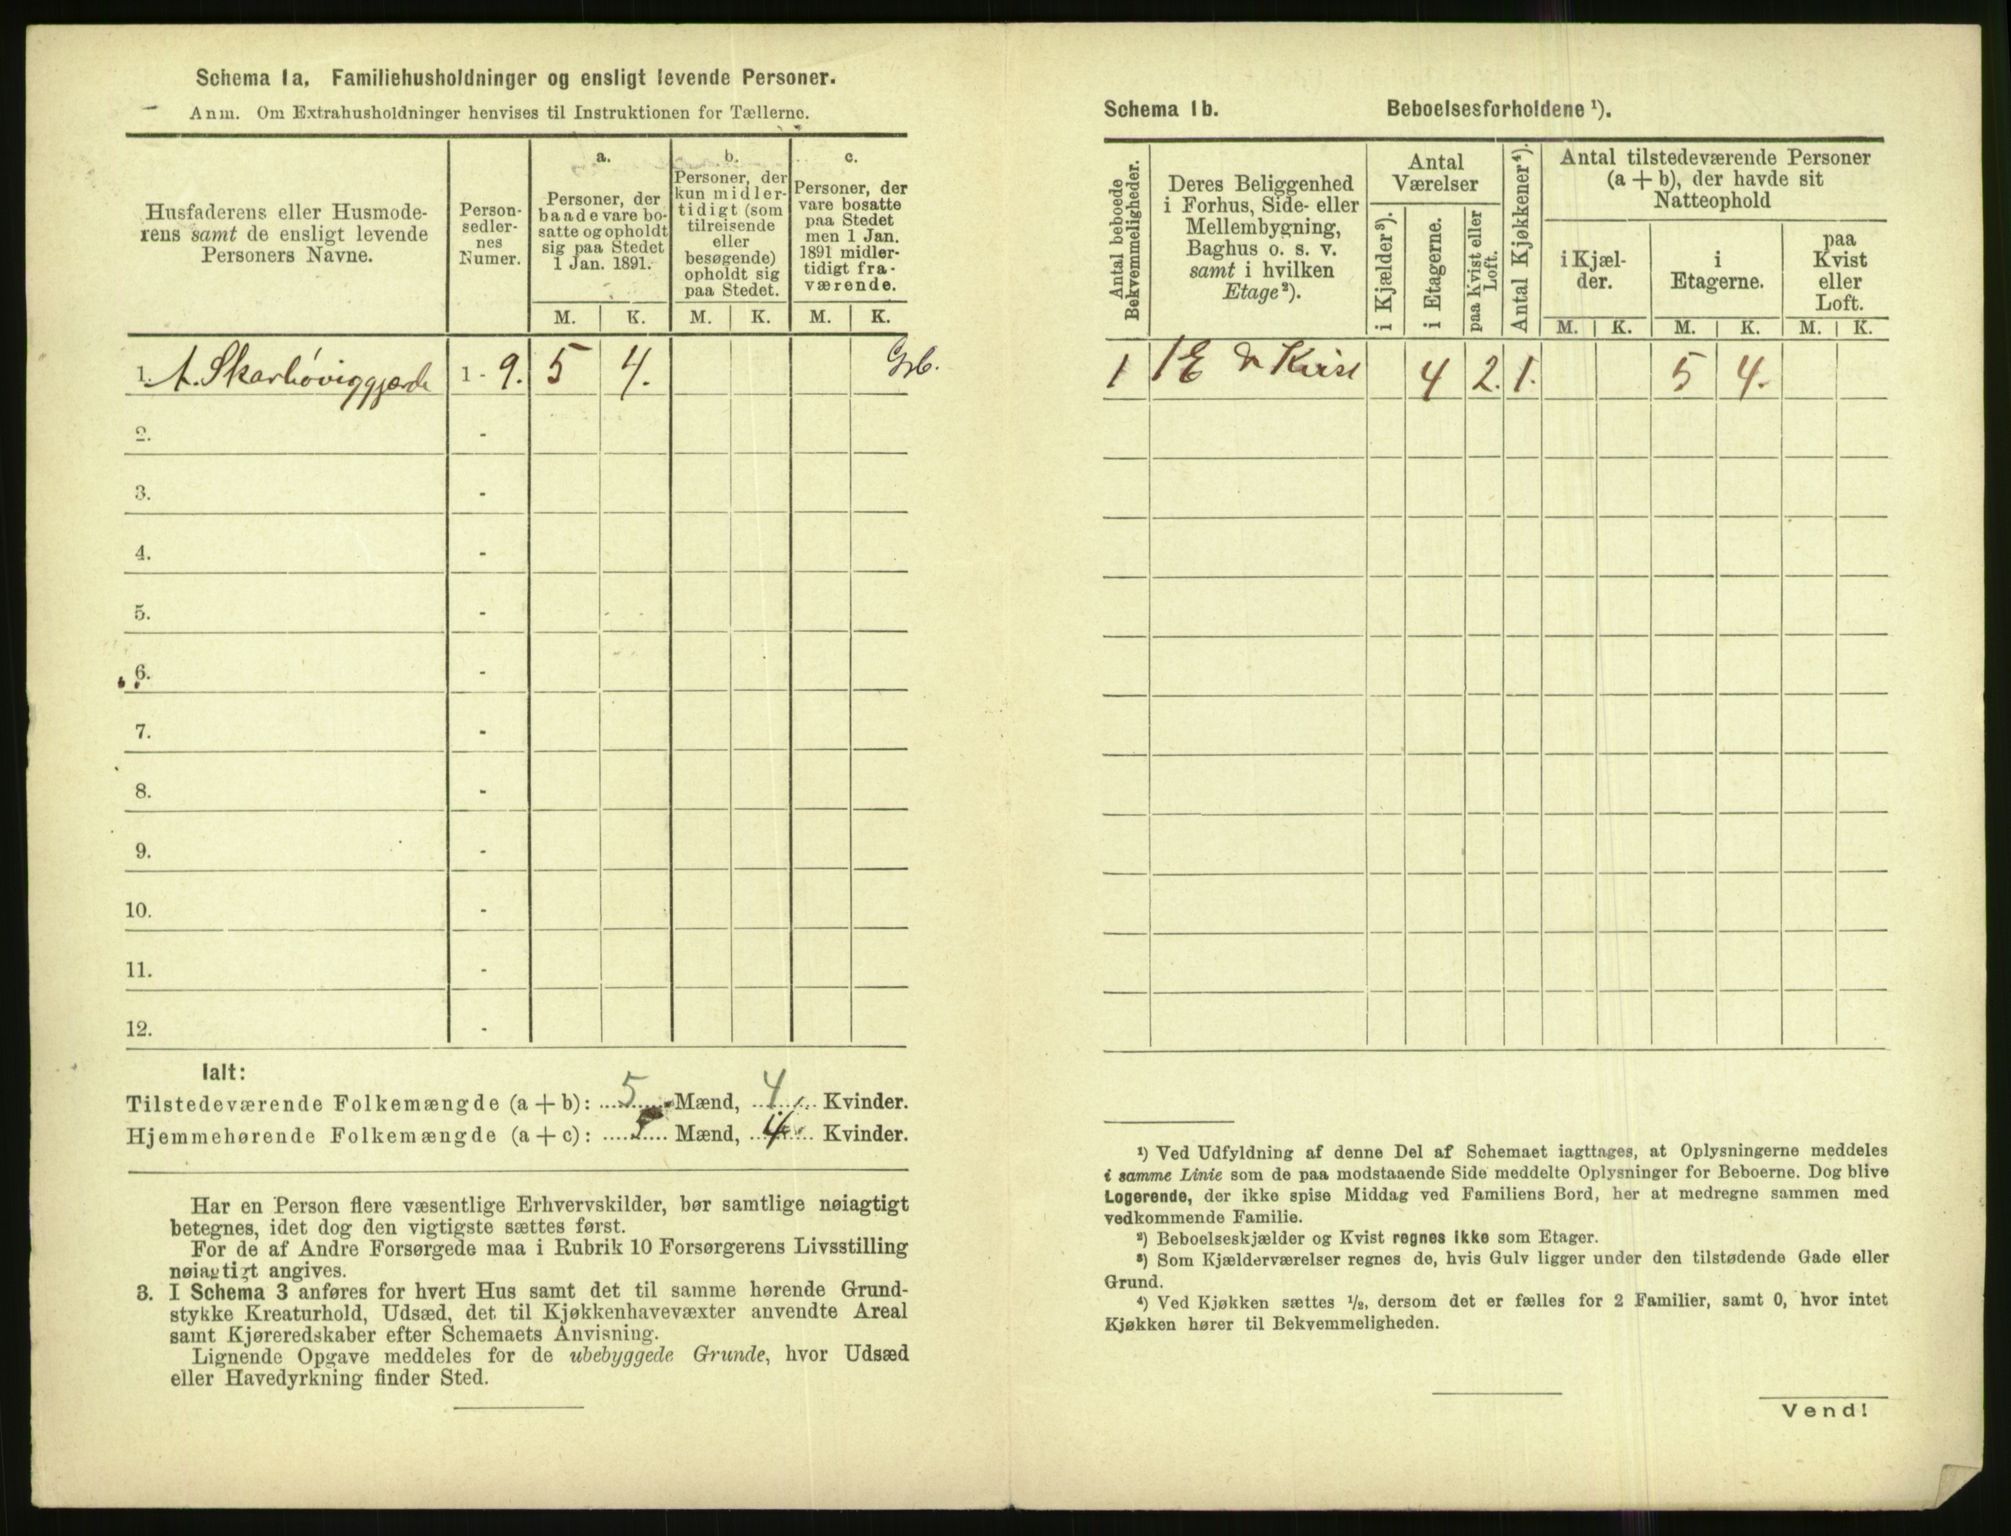 Schema 1a. Familiehusholdninger og ensligt levende Personer.
Anm. Om Extrahusholdninger henvises til Instruktionen for Tællerne.
Husfaderens eller Husmode-
rens samt de ensligt levende
Personers Navne.
Person-
sedler-
nes
Numer.
a.
Personer, der
baade vare bo-
satte og opholdt
sig paa Stedet
1 Jan. 1891.
b.
Personer, der
kun midler-
tidigt (som
tilreisende
eller
besøgende)
opholdt sig
paa Stedet.
c.
Personer, der
vare bosatte
paa Stedet
men 1 Jan.
1891 midler-
tidigt fra-
værende.
M. K. M. K. M. K.
1. A. Skarhøviggjærde 1 - 9. 5 4.
2. -
3. -
4. -
5. -
6. -
7. -
8. -
9. -
10. -
11. -
12. -
Ialt:
Tilstedeværende Folkemængde (a + b): 5 Mænd, 4 Kvinder.
Hjemmehørende Folkemængde (a + c): 5 Mænd, 4 Kvinder.
Har en Person flere væsentlige Erhvervskilder, bør samtlige nøiagtigt
betegnes, idet dog den vigtigste sættes først.
For de af Andre Forsørgede maa i Rubrik 10 Forsørgerens Livsstilling
nøiagtigt angives.
3. I Schema 3 anføres for hvert Hus samt det til samme hørende Grund-
stykke Kreaturhold, Udsæd, det til Kjøkkenhavevæxter anvendte Areal
samt Kjøreredskaber efter Schemaets Anvisning.
Lignende Opgave meddeles for de ubebyggede Grunde, hvor Udsæd
eller Havedyrkning finder Sted.
Schema 1b. Beboelsesforholdene ¹).
Antal beboede
Bekvemmeligheder.
Deres Beliggenhed
i Forhus, Side- eller
Mellembygning,
Baghus o. s. v.
samt i hvilken
Etage²).
Antal
Værelser
i Kjælder³).
i Etagerne.
paa Kvist eller
Loft.
Antal Kjøkkener⁴).
Antal tilstedeværende Personer
(a + b), der havde sit
Natteophold
i Kjæl-
der.
i
Etagerne.
paa
Kvist
eller
Loft.
M. K. M. K. M. K.
1 1 E & Kvist 4 2. 1. 5 4.
¹) Ved Udfyldning af denne Del af Schemaet iagttages, at Oplysningerne meddeles
i samme Linie som de paa modstaaende Side meddelte Oplysninger for Beboerne. Dog blive
Logerende, der ikke spise Middag ved Familiens Bord, her at medregne sammen med
vedkommende Familie.
²) Beboelseskjælder og Kvist regnes ikke som Etager.
³) Som Kjælderværelser regnes de, hvis Gulv ligger under den tilstødende Gade eller
Grund.
⁴) Ved Kjøkken sættes ½, dersom det er fælles for 2 Familier, samt 0, hvor intet
Kjøkken hører til Bekvemmeligheden.
Vend!